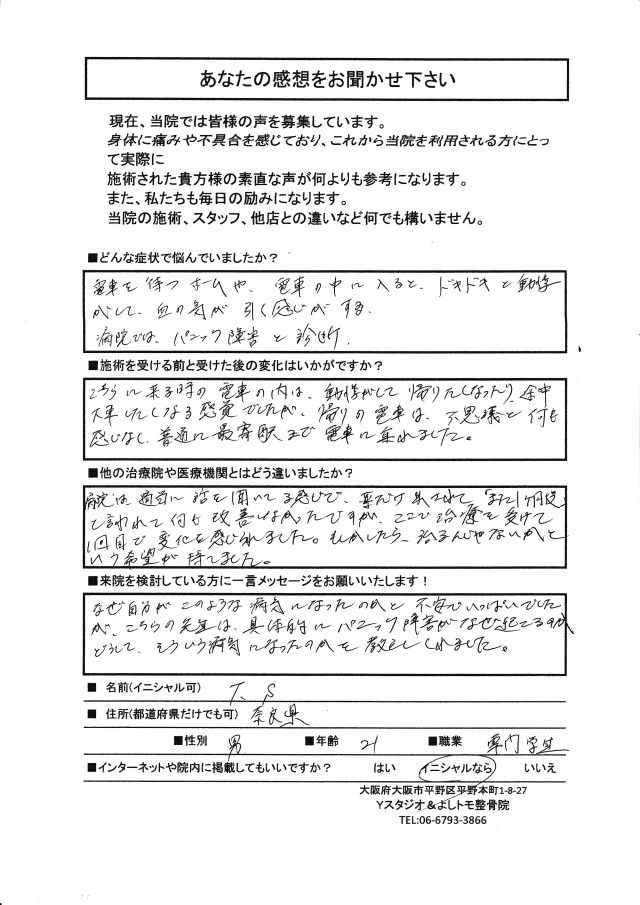 あなたの感想をお聞かせ下さい
現在、当院では皆様の声を募集しています。
身体に痛みや不具合を感じており、これから当院を利用される方にとっ
て実際に
施術された貴方様の素直な声が何よりも参考になります。
また、私たちも毎日の励みになります。
当院の施術、スタッフ、他店との違いなど何でも構いません。
■どんな症状で悩んでいましたか？
電車を待つホームや、電車の中に入ると、ドキドキと動悸
がして、血の気が引く感じがする。
病院では、パニック障害と診断。
■施術を受ける前と受けた後の変化はいかがですか？
こちらに来る時の電車の内は、動悸がして帰りたくなったり、途中
下車したくなる感覚でしたが、帰りの電車は、不思議と何も
感じなく、普通に最寄駅まで電車に乗れました。
■他の治療院や医療機関とはどう違いましたか？
病院は、適当に話を聞いてる感じで、薬だけ出されて「また1ヶ月後」
と言われて何も改善しなかったですが、ここで治療を受けて
1回目で変化を感じられました。もしかしたら、治るんじゃないかと
いう希望が持てました。
■来院を検討している方に一言メッセージをお願いいたします！
なぜ自分がこのような病気になったのかと不安でいっぱいでした
が、こちらの先生は、具体的にパニック障害がなぜ起こるのか
どうして、そういう病気になったのかを教えてくれました。
■ 名前(イニシャル可) T.S
■ 住所(都道府県だけでも可) 奈良県
■性別 男 ■年齢 21 ■職業 専門学生
■インターネットや院内に掲載してもいいですか？ はい イニシャルなら いいえ
大阪府大阪市平野区平野本町1-8-27
Yスタジオ＆よしトモ整骨院
TEL:06-6793-3866